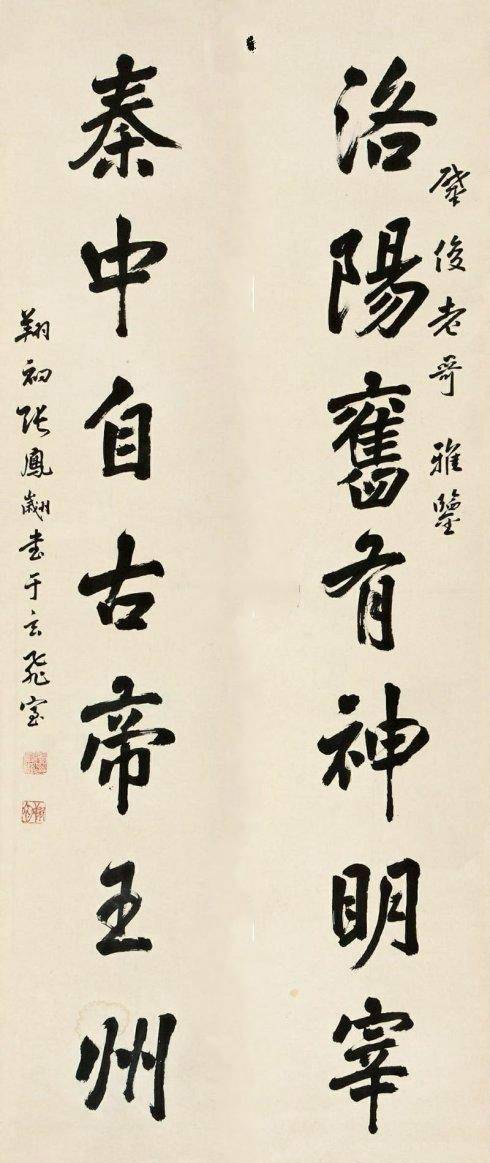 肇俊老哥 雅鑒
洛陽舊有神明宰
秦中自古帝王州
翔初張鳳翽書于玄飛室